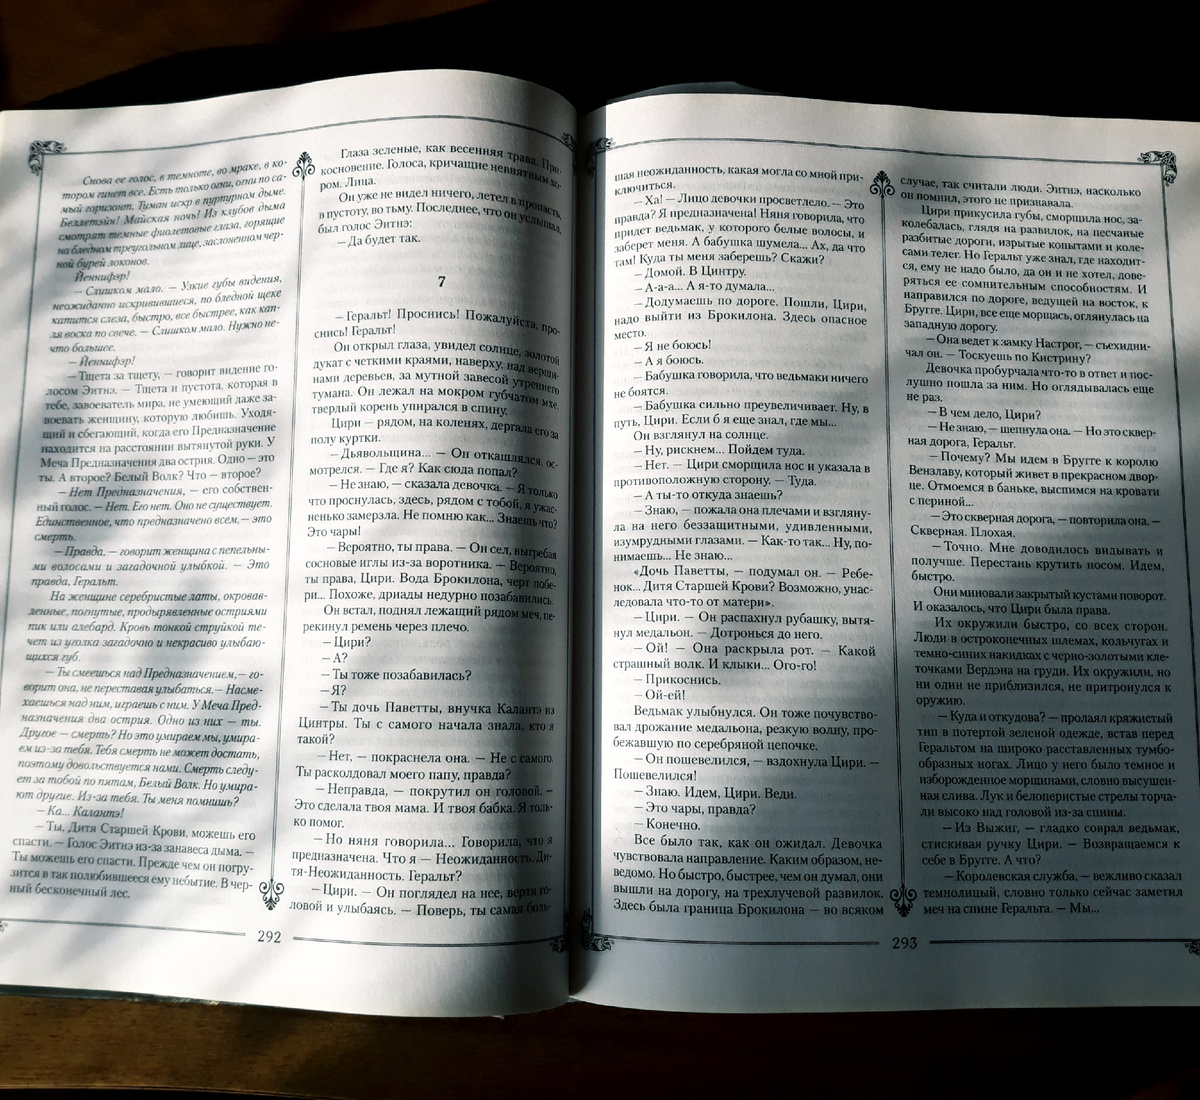 Снова ее голос, в темноте, во мраке, в ко-
тором гинет все. Есть только огни, огни по са-
мый горизонт. Туман искр в пурпурном дыме.
Беллетэйн! Майская ночь! Из клубов дыма
смотрят темные фиолетовые глаза, горящие
на бледном треугольном лице, заслоненном чер-
ной бурей локонов.
Йеннифэр!
— Слишком мало. — Узкие губы видения,
неожиданно искривившиеся, по бледной щеке
катится слеза, быстро, все быстрее, как кап-
ля воска по свече. — Слишком мало. Нужно не-
что большее.
— Йеннифэр!
— Тщета за тщету, — говорит видение го-
лосом Эитнэ. — Тщета и пустота, которая в
тебе, завоеватель мира, не умеющий даже за-
воевать женщину, которую любишь. Уходя-
щий и сбегающий, когда его Предназначение
находится на расстоянии вытянутой руки. У
Меча Предназначения два острия. Одно — это
ты. А второе? Белый Волк? Что — второе?
— Нет Предназначения, — его собствен-
ный голос. — Нет. Его нет. Оно не существует.
Единственное, что предназначено всем, — это
смерть.
— Правда, — говорит женщина с пепельны-
ми волосами и загадочной улыбкой. — Это
правда, Геральт.
На женщине серебристые латы, окровав-
ленные, погнутые, продырявленные остриями
пик или алебард. Кровь тонкой струйкой те-
чет из уголка загадочно и некрасиво улыбаю-
щихся губ.
— Ты смеешься над Предназначением, — го-
ворит она, не переставая улыбаться. — Насме-
хаешься над ним, играешь с ним. У Меча Пред-
назначения два острия. Одно из них — ты.
Другое — смерть? Но это умираем мы, умира-
ем из-за тебя. Тебя смерть не может достать,
поэтому довольствуется нами. Смерть следу-
ет за тобой по пятам, Белый Волк. Но умира-
ют другие. Из-за тебя. Ты меня помнишь?
— Ка... Калантэ!
— Ты, Дитя Старшей Крови, можешь его
спасти. — Голос Эитнэ из-за занавеса дыма. —
Ты можешь его спасти. Прежде чем он погру-
зится в так полюбившееся ему небытие. В чер-
ный бесконечный лес.
Глаза зеленые, как весенняя трава. При-
косновение. Голоса, кричащие невнятным хо-
ром. Лица.
Он уже не видел ничего, летел в пропасть,
в пустоту, во тьму. Последнее, что он услышал,
был голос Эитнэ:
— Да будет так.
7
— Геральт! Проснись! Пожалуйста, про-
снись! Геральт!
Он открыл глаза, увидел солнце, золотой
дукат с четкими краями, наверху, над верши-
нами деревьев, за мутной завесой утреннего
тумана. Он лежал на мокром губчатом мхе,
твердый корень упирался в спину.
Цири — рядом, на коленях, дергала его за
полу куртки.
— Дьявольщина... — Он откашлялся, ос-
мотрелся. — Где я? Как сюда попал?
— Не знаю, — сказала девочка. — Я только
что проснулась, здесь, рядом с тобой, я ужас-
ненько замерзла. Не помню как... Знаешь что?
Это чары!
— Вероятно, ты права. — Он сел, выгребая
сосновые иглы из-за воротника. — Вероятно,
ты права, Цири. Вода Брокилона, черт побе-
ри... Похоже, дриады недурно позабавились.
Он встал, поднял лежащий рядом меч, пе-
рекинул ремень через плечо.
— Цири?
— А?
— Ты тоже позабавилась?
— Я?
— Ты дочь Паветты, внучка Калантэ из
Цинтры. Ты с самого начала знала, кто я
такой?
— Нет, — покраснела она. — Не с самого.
Ты расколдовал моего папу, правда?
— Неправда, — покрутил он головой. —
Это сделала твоя мама. И твоя бабка. Я толь-
ко помог.
— Но няня говорила... Говорила, что я
предназначена. Что я — Неожиданность. Ди-
тя-Неожиданность. Геральт?
— Цири. — Он поглядел на нее, вертя го-
ловой и улыбаясь. — Поверь, ты самая боль-
292
шая неожиданность, какая могла со мной при-
ключиться.
— Ха! — Лицо девочки просветлело. — Это
правда? Я предназначена! Няня говорила, что
придет ведьмак, у которого белые волосы, и
заберет меня. А бабушка шумела... Ах, да что
там! Куда ты меня заберешь? Скажи?
— Домой. В Цинтру.
— А-а-а... А я-то думала...
— Додумаешь по дороге. Пошли, Цири,
надо выйти из Брокилона. Здесь опасное
место.
— Я не боюсь!
— А я боюсь.
— Бабушка говорила, что ведьмаки ничего
не боятся.
— Бабушка сильно преувеличивает. Ну, в
путь, Цири. Если б я еще знал, где мы...
Он взглянул на солнце.
— Ну, рискнем... Пойдем туда.
— Нет. — Цири сморщила нос и указала в
противоположную сторону. — Туда.
— А ты-то откуда знаешь?
— Знаю, — пожала она плечами и взгляну-
ла на него беззащитными, удивленными,
изумрудными глазами. — Как-то так... Ну, по-
нимаешь... Не знаю...
«Дочь Паветты, — подумал он. — Ребе-
нок... Дитя Старшей Крови? Возможно, унас-
ледовала что-то от матери».
— Цири. — Он распахнул рубашку, вытя-
нул медальон. — Дотронься до него.
— Ой! — Она раскрыла рот. — Какой
страшный волк. И клыки... Ого-го!
— Прикоснись.
— Ой-ей!
Ведьмак улыбнулся. Он тоже почувство-
вал дрожание медальона, резкую волну, про-
бежавшую по серебряной цепочке.
— Он пошевелился, — вздохнула Цири. —
Пошевелился!
— Знаю. Идем, Цири. Веди.
— Это чары, правда?
— Конечно.
Все было так, как он ожидал. Девочка
чувствовала направление. Каким образом, не-
ведомо. Но быстро, быстрее, чем он думал, они
вышли на дорогу, на трехлучевой развилок.
Здесь была граница Брокилона — во всяком
случае, так считали люди. Эитнэ, насколько
он помнил, этого не признавала.
Цири прикусила губы, сморщила нос, за-
колебалась, глядя на развилок, на песчаные
разбитые дороги, изрытые копытами и коле-
сами телег. Но Геральт уже знал, где находит-
ся, ему не надо было, да он и не хотел, дове-
ряться ее сомнительным способностям. И
направился по дороге, ведущей на восток, к
Бругге. Цири, все еще морщась, оглянулась на
западную дорогу.
— Она ведет к замку Настрог, — съехидни-
чал он. — Тоскуешь по Кистрину?
Девочка пробурчала что-то в ответ и пос-
лушно пошла за ним. Но оглядывалась еще
не раз.
— В чем дело, Цири?
— Не знаю, — шепнула она. — Но это сквер-
ная дорога, Геральт.
— Почему? Мы идем в Бругге к королю
Вензлаву, который живет в прекрасном двор-
це. Отмоемся в баньке, выспимся на кровати
с периной...
— Это скверная дорога, — повторила она. —
Скверная. Плохая.
— Точно. Мне доводилось видывать и
получше. Перестань крутить носом. Идем,
быстро.
Они миновали закрытый кустами поворот.
И оказалось, что Цири была права.
Их окружили быстро, со всех сторон.
Люди в остроконечных шлемах, кольчугах и
темно-синих накидках с черно-золотыми кле-
точками Вердэна на груди. Их окружили, но
ни один не приблизился, не притронулся к
оружию.
— Куда и откудова? — пролаял кряжистый
тип в потертой зеленой одежде, встав перед
Геральтом на широко расставленных тумбо-
образных ногах. Лицо у него было темное и
изборожденное морщинами, словно высушен-
ная слива. Лук и белоперистые стрелы торча-
ли высоко над головой из-за спины.
— Из Выжиг, — гладко соврал ведьмак,
стискивая ручку Цири. — Возвращаемся к
себе в Бругге. А что?
— Королевская служба, — вежливо сказал
темнолицый, словно только сейчас заметил
меч на спине Геральта. — Мы...
293